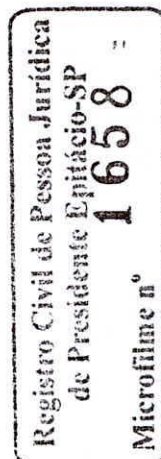 Registro Civil de Pessoa Jurídica
de Presidente Epitácio-SP
1658
Microfilme nº